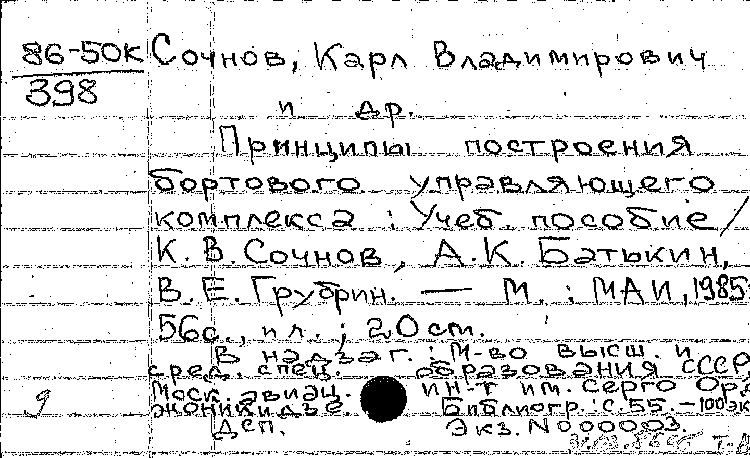 86-50К Сочнов, Карл Владимирович
398 и др.
Принципы построения
бортового управляющего
комплекса : Учеб. пособие /
К. В. Сочнов, А. К. Батькин,
В. Е. Грубрин. — М. : МАИ, 1985
56с., ил. ; 20 cm.
В надзаг. : М-во высш. и
сред. спец. образования СССР,
Моск. авиац. ин-т им. Серго Орд
жоникидзе. Библиогр.: с. 55. - 100эк
9
Дсп. Экз. N000003.